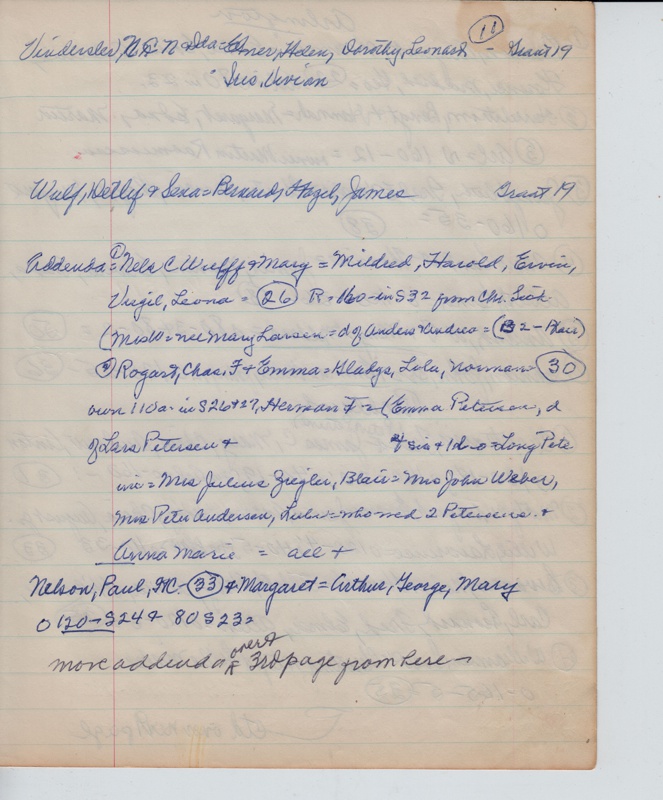 11
Vindersler, N & Ida = Elmer, Helen, Dorothy, Leonard - Grant 19
Iris, Vivian
Wulf, Detlif & Sena = Bernard, Hazel, James Grant 19
Addenda = ① Nels C Wulff & Mary = Mildred, Harold, Ervin,
Virgil, Leona = 26 R = 160 - in S 32 from Chr. Sick
(Mrs W = nee Mary Larsen = d of Anders = (B 2 - Blair)
② Rogart, Chas. F & Emma = Gladys, Lola, Norman = 30
own 110a - in S 26 & 27, Herman F = (Emma Petersen, d
of Lars Petersen & 4 sis & 1 d = Long Pete
= Mrs Julius Ziegler, Blair = Mrs John Weber,
Mrs Peter Andersen, = who md 2 Petersens &
Anna Marie = all +
Nelson, Paul, HC - 33 & Margaret = Arthur, George, Mary
O 120 - S 24 & 80 S 23 =
more addenda over & 3rd page from here -